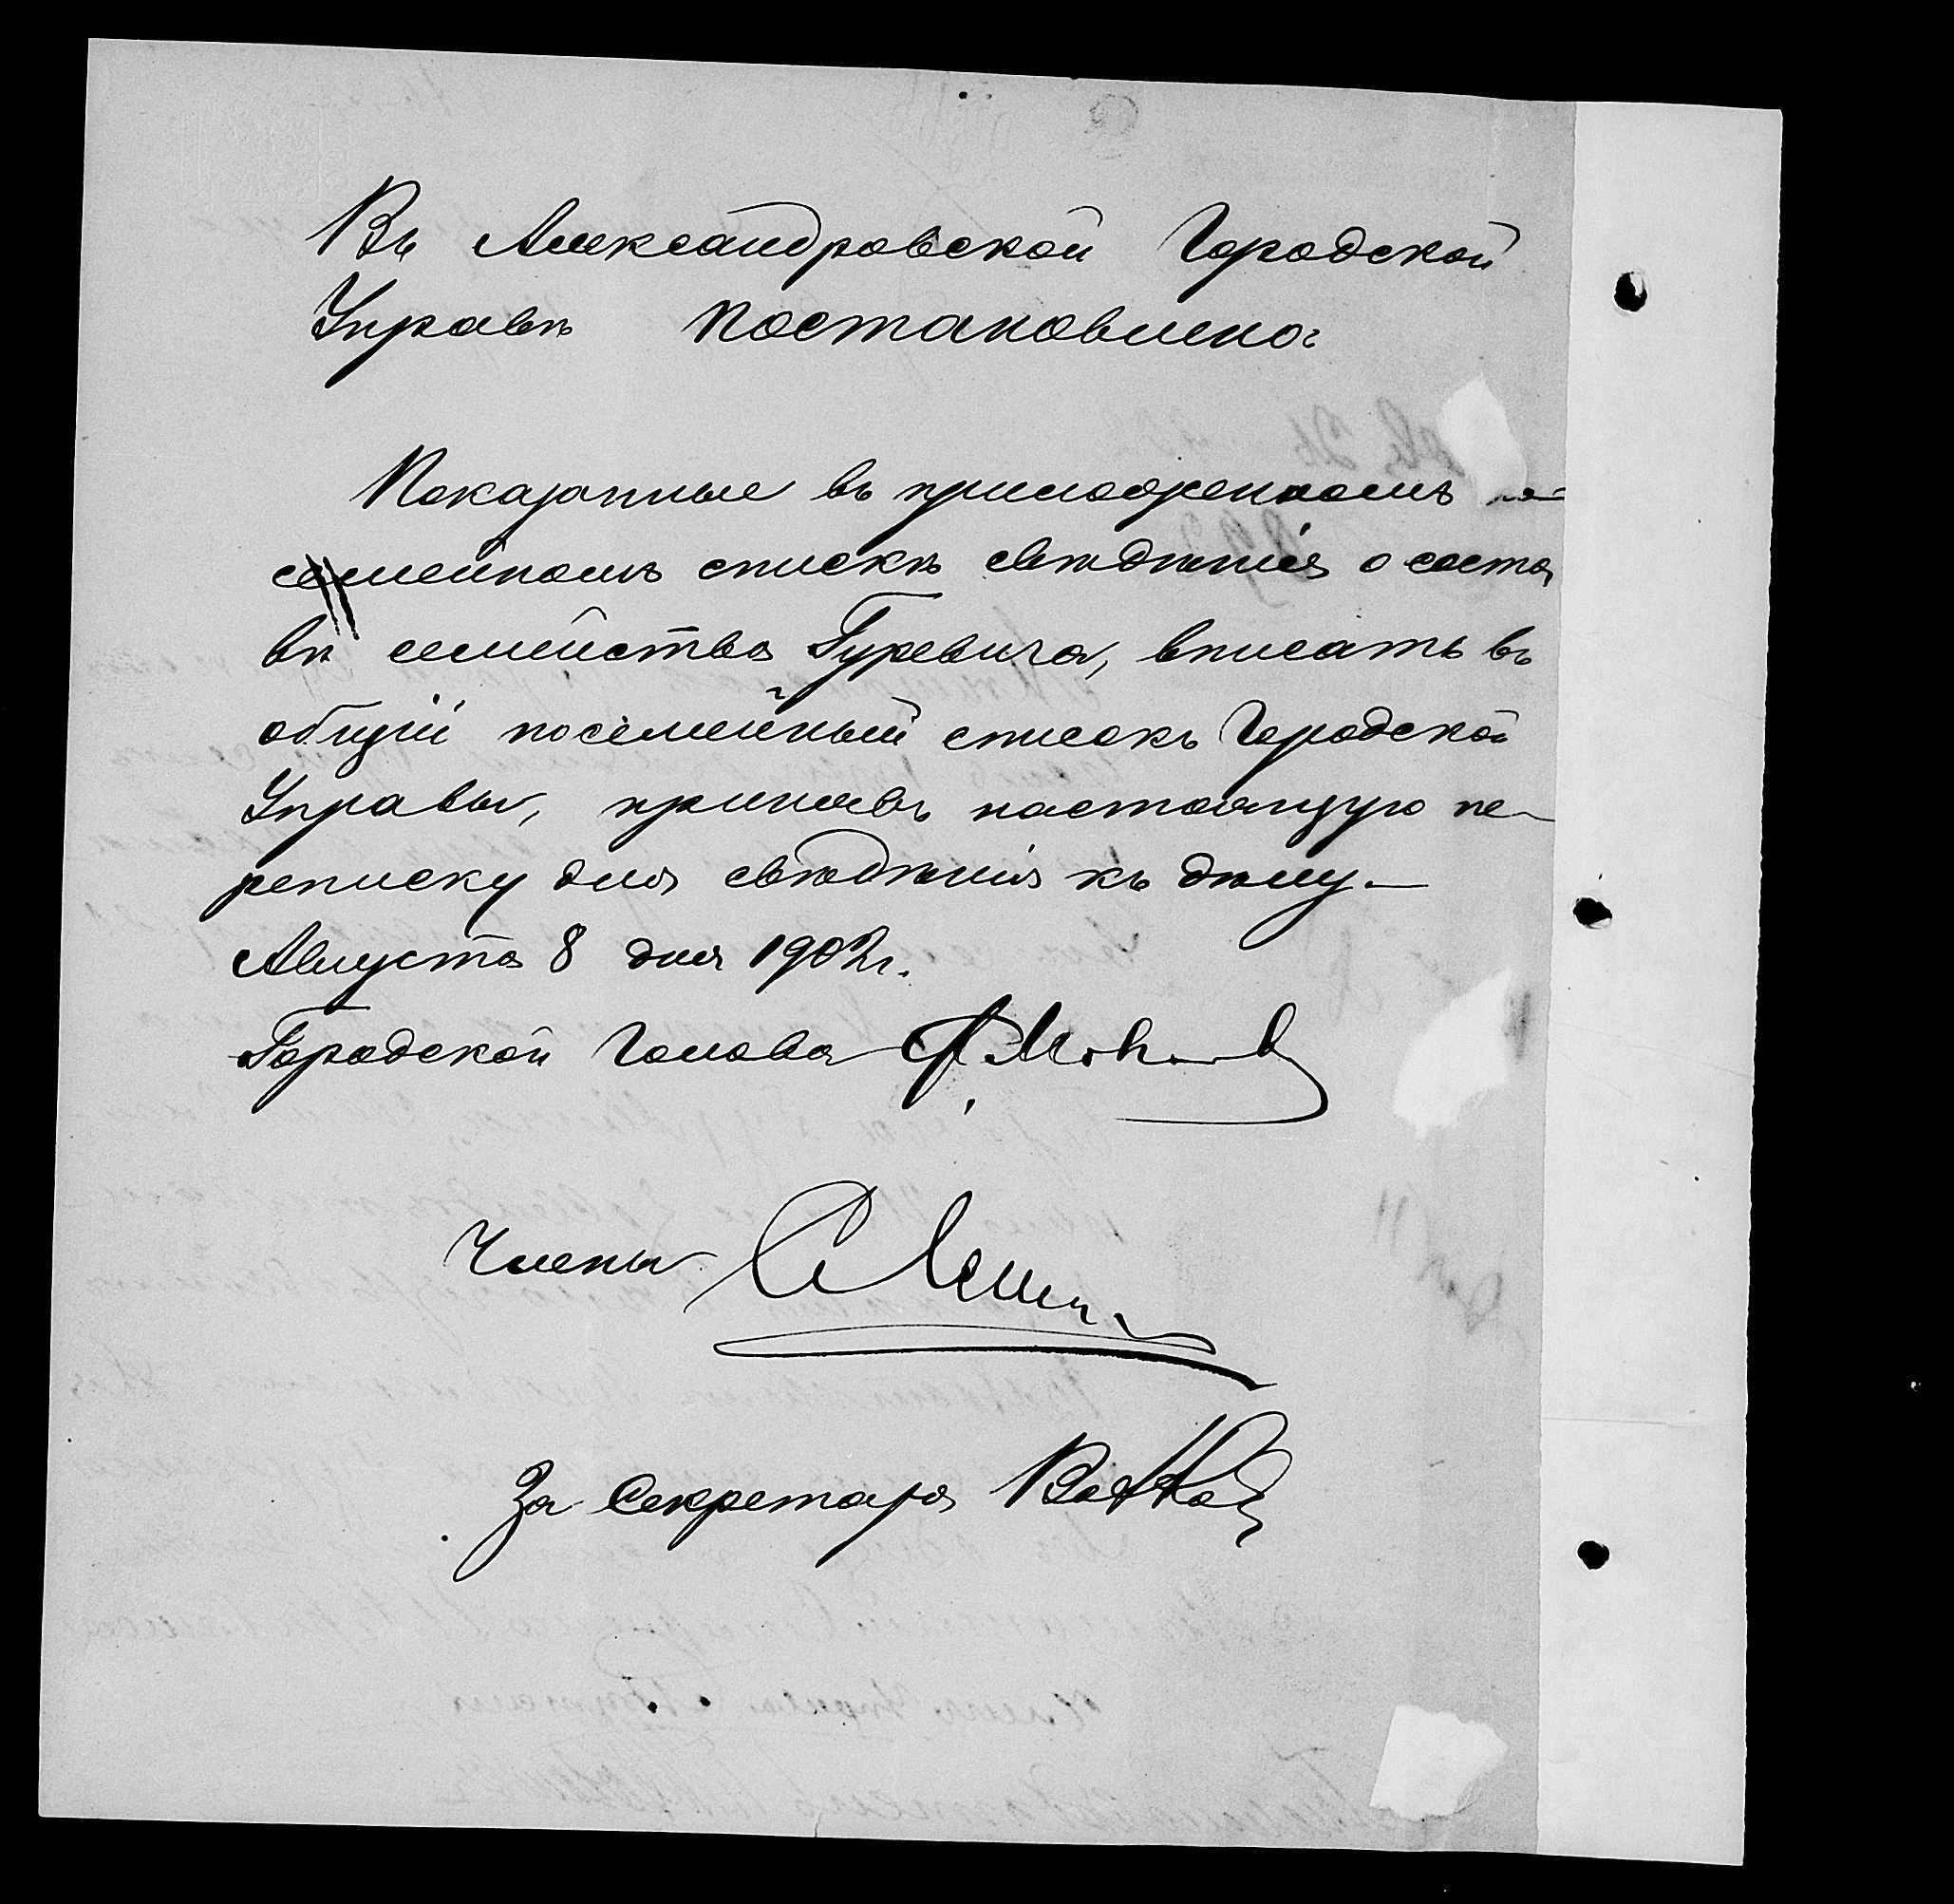 Въ Александровской Городской
Управѣ постановлено:
Показанные въ приложенномъ по
семейномъ спискѣ свѣдѣнія о соста
вѣ семейства Гуревича, вписать въ
общій посемейный списокъ Городской
Управы, принявъ настоящую пе-
реписку для свѣдѣнія къ дѣлу.
Августа 8 дня 1902 г.
Городской Голова Ф.
Члены
За Секретаря